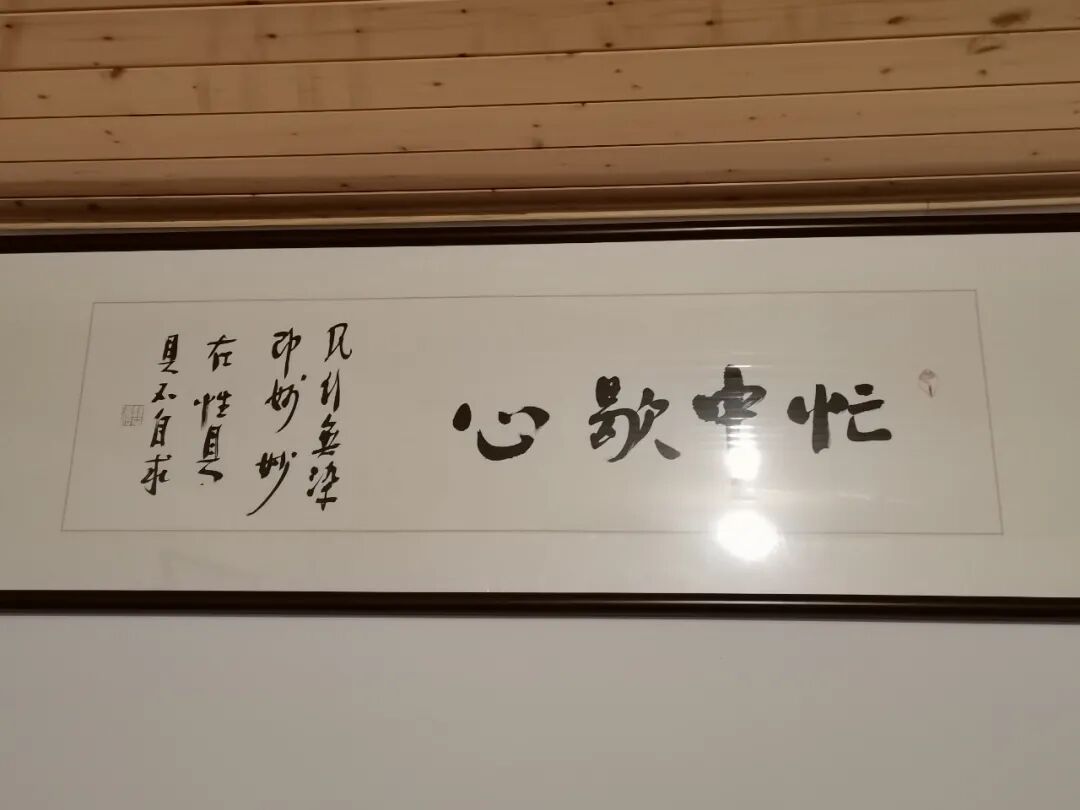 忙中歇心
凡行無染
即妙妙
在性具
具不自求